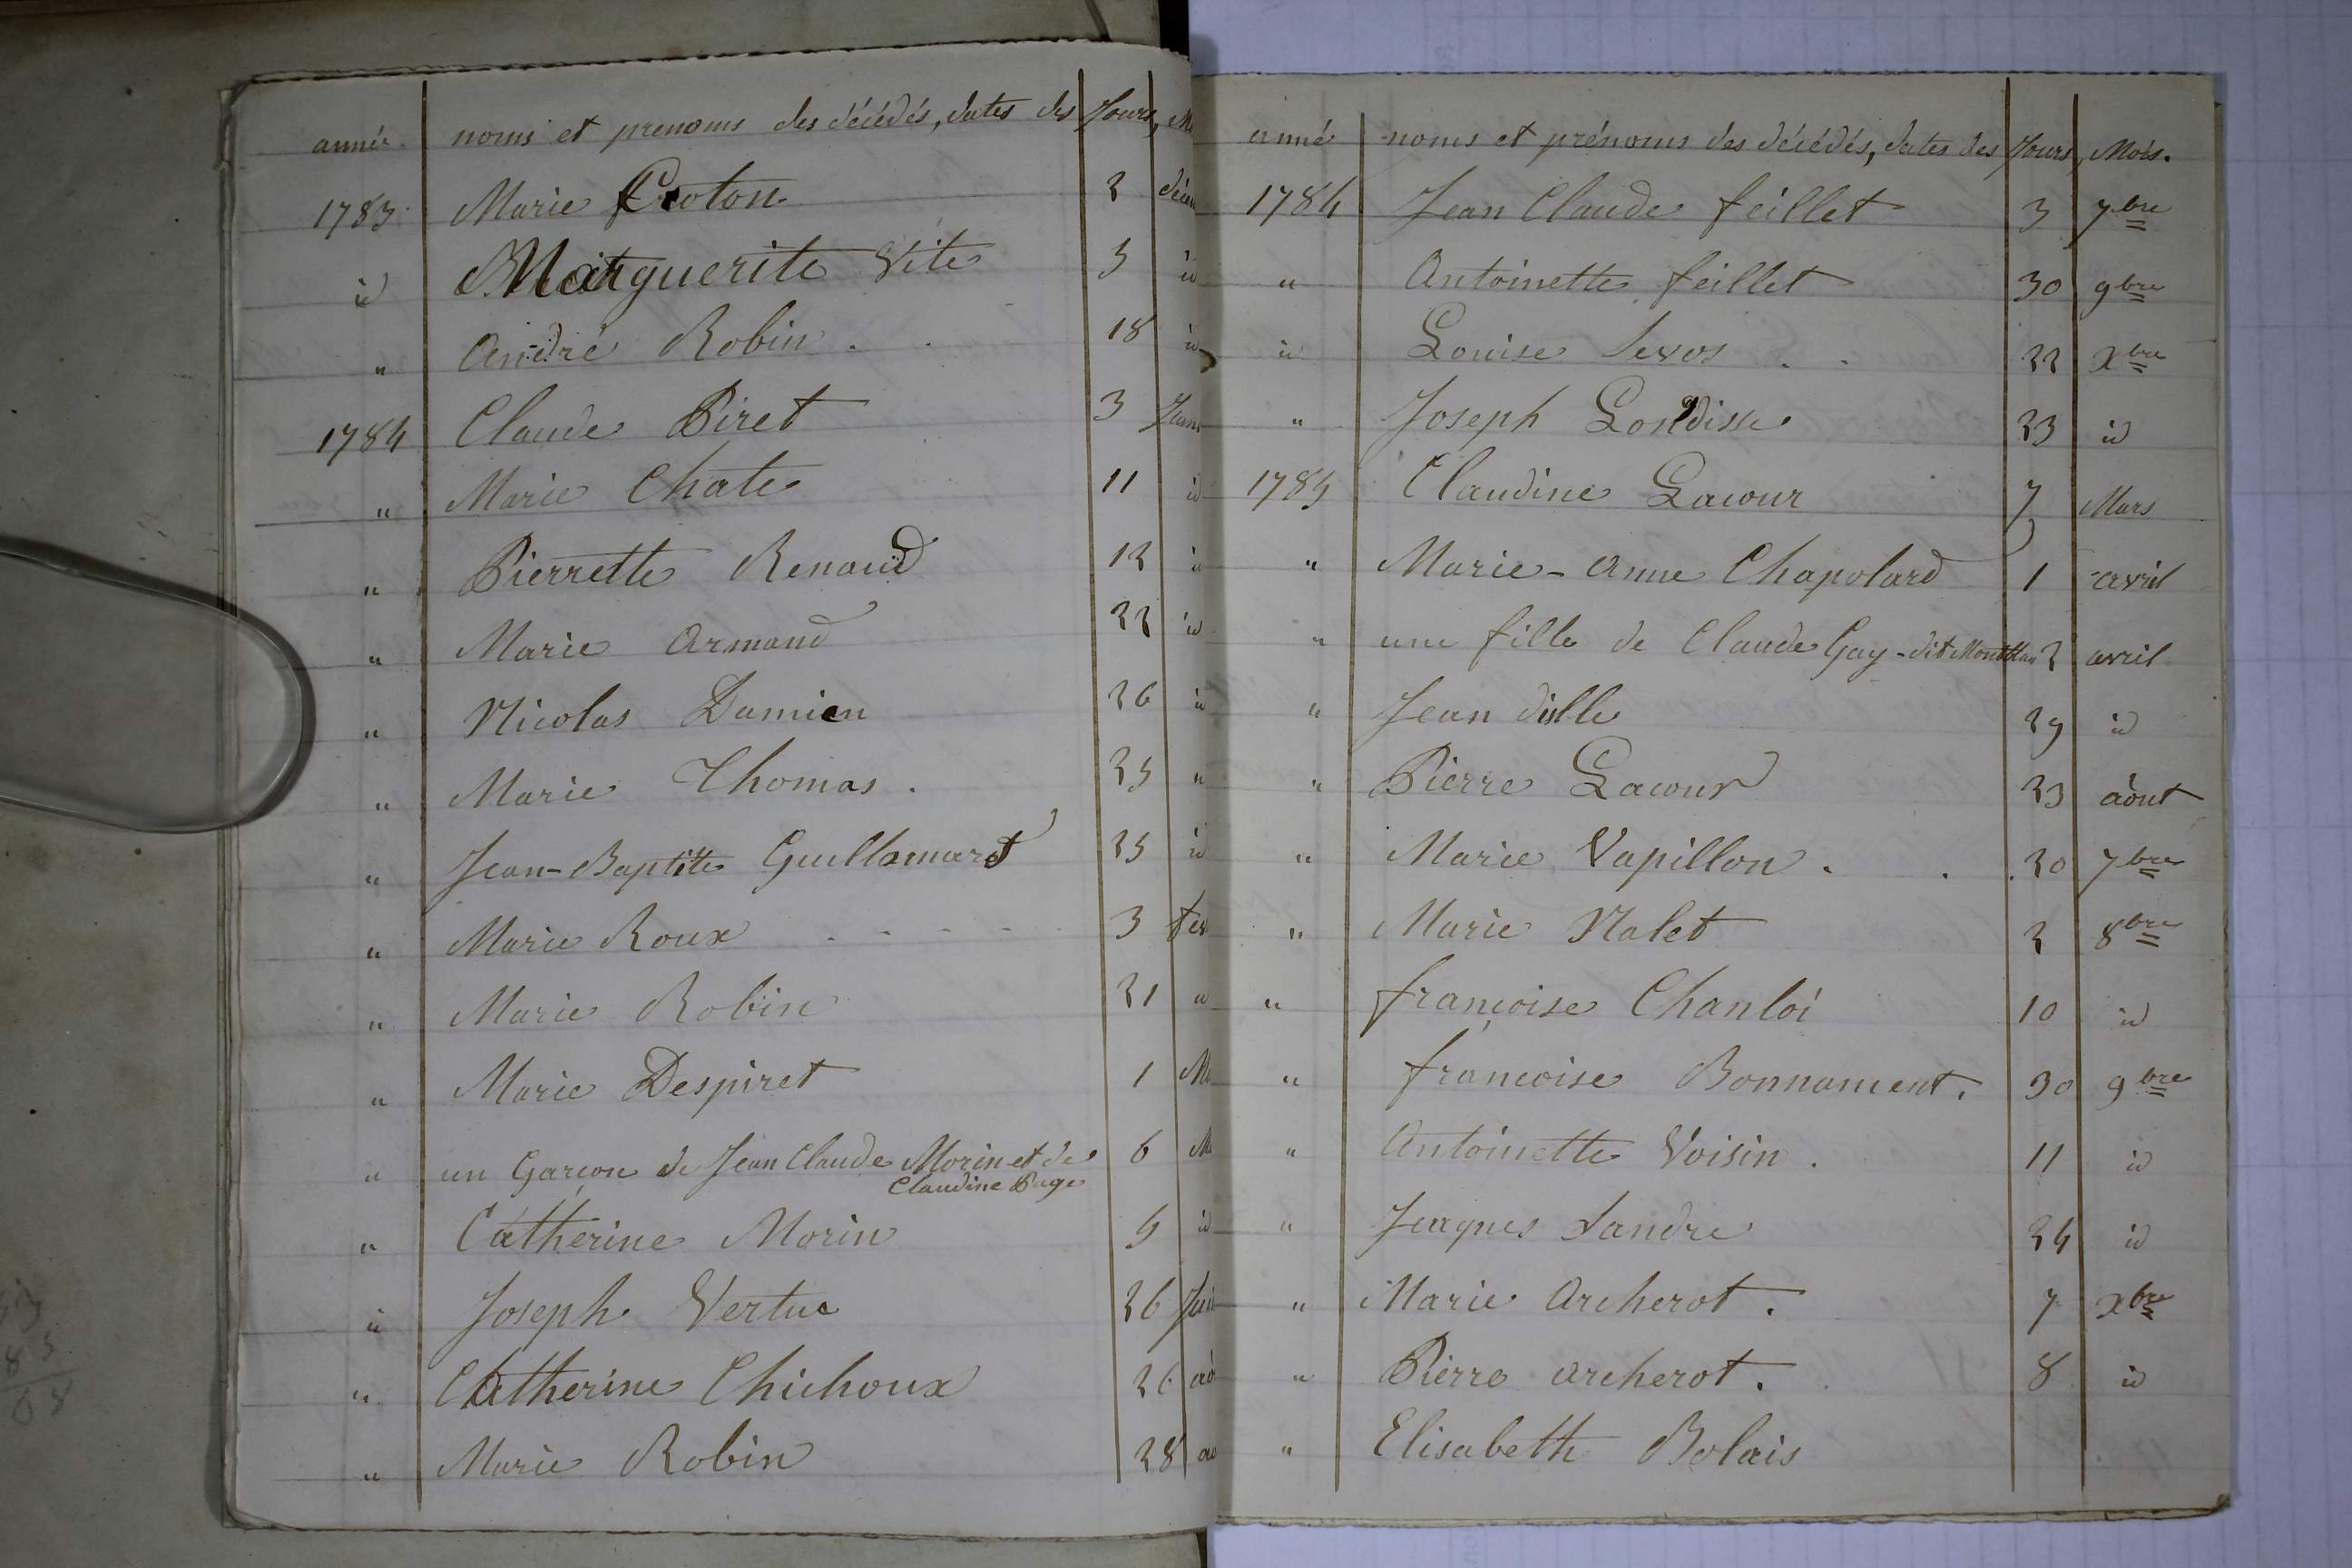 année noms et prenoms des décédés, dates des Jours, M
1783 Marie Croton 2 décem
id Marguerite Vite 3 id
" André Robin . . 18 id
1784 Claude Piret 3 Janv
" Marie Chate 11 id
" Pierrette Renaud 12 id
" Marie Armand 22 id
" Nicolas Damien 26 id
" Marie Thomas . 25 "
" Jean-Baptiste Guillamard 25 id
" Marie Roux - - - - - 3 fev
" Marie Robin 21 "
" Marie Despiret 1 Ma
" un Garçon de Jean Claude Morin et de 6 M
Claudine Page
" Catherine Morin 9 id
" Joseph Vertue 26 Juin
" Catherine Chichoux 26 aô
" Marie Robin 28 ao
année noms et prénoms des décédés, dates des Jours, Mois.
1784 Jean Claude feillet 3 7bre
" Antoinette feillet 30 9bre
id Louise Sevos . . 22 Xbre
" Joseph 23 id
1785 Claudine Lacour 7 Mars
" Marie-Anne Chapolard 1 avril
" une fille de Claude Gay-dit 2 avril
" Jean dille 29 id
" Pierre Lacour 23 aôut
" Marie Vapillon . . 20 7bre
" Marie Nalet 2 8bre
" françoise Chanloi 10 id
" francoise Bonnament. 30 9bre
" Antoinette Voisin . 11 id
" Jaques Landre 24 id
" Marie Archerot . 7 xbre
" Pierre archerot . 8 id
" Elisabeth Bolais